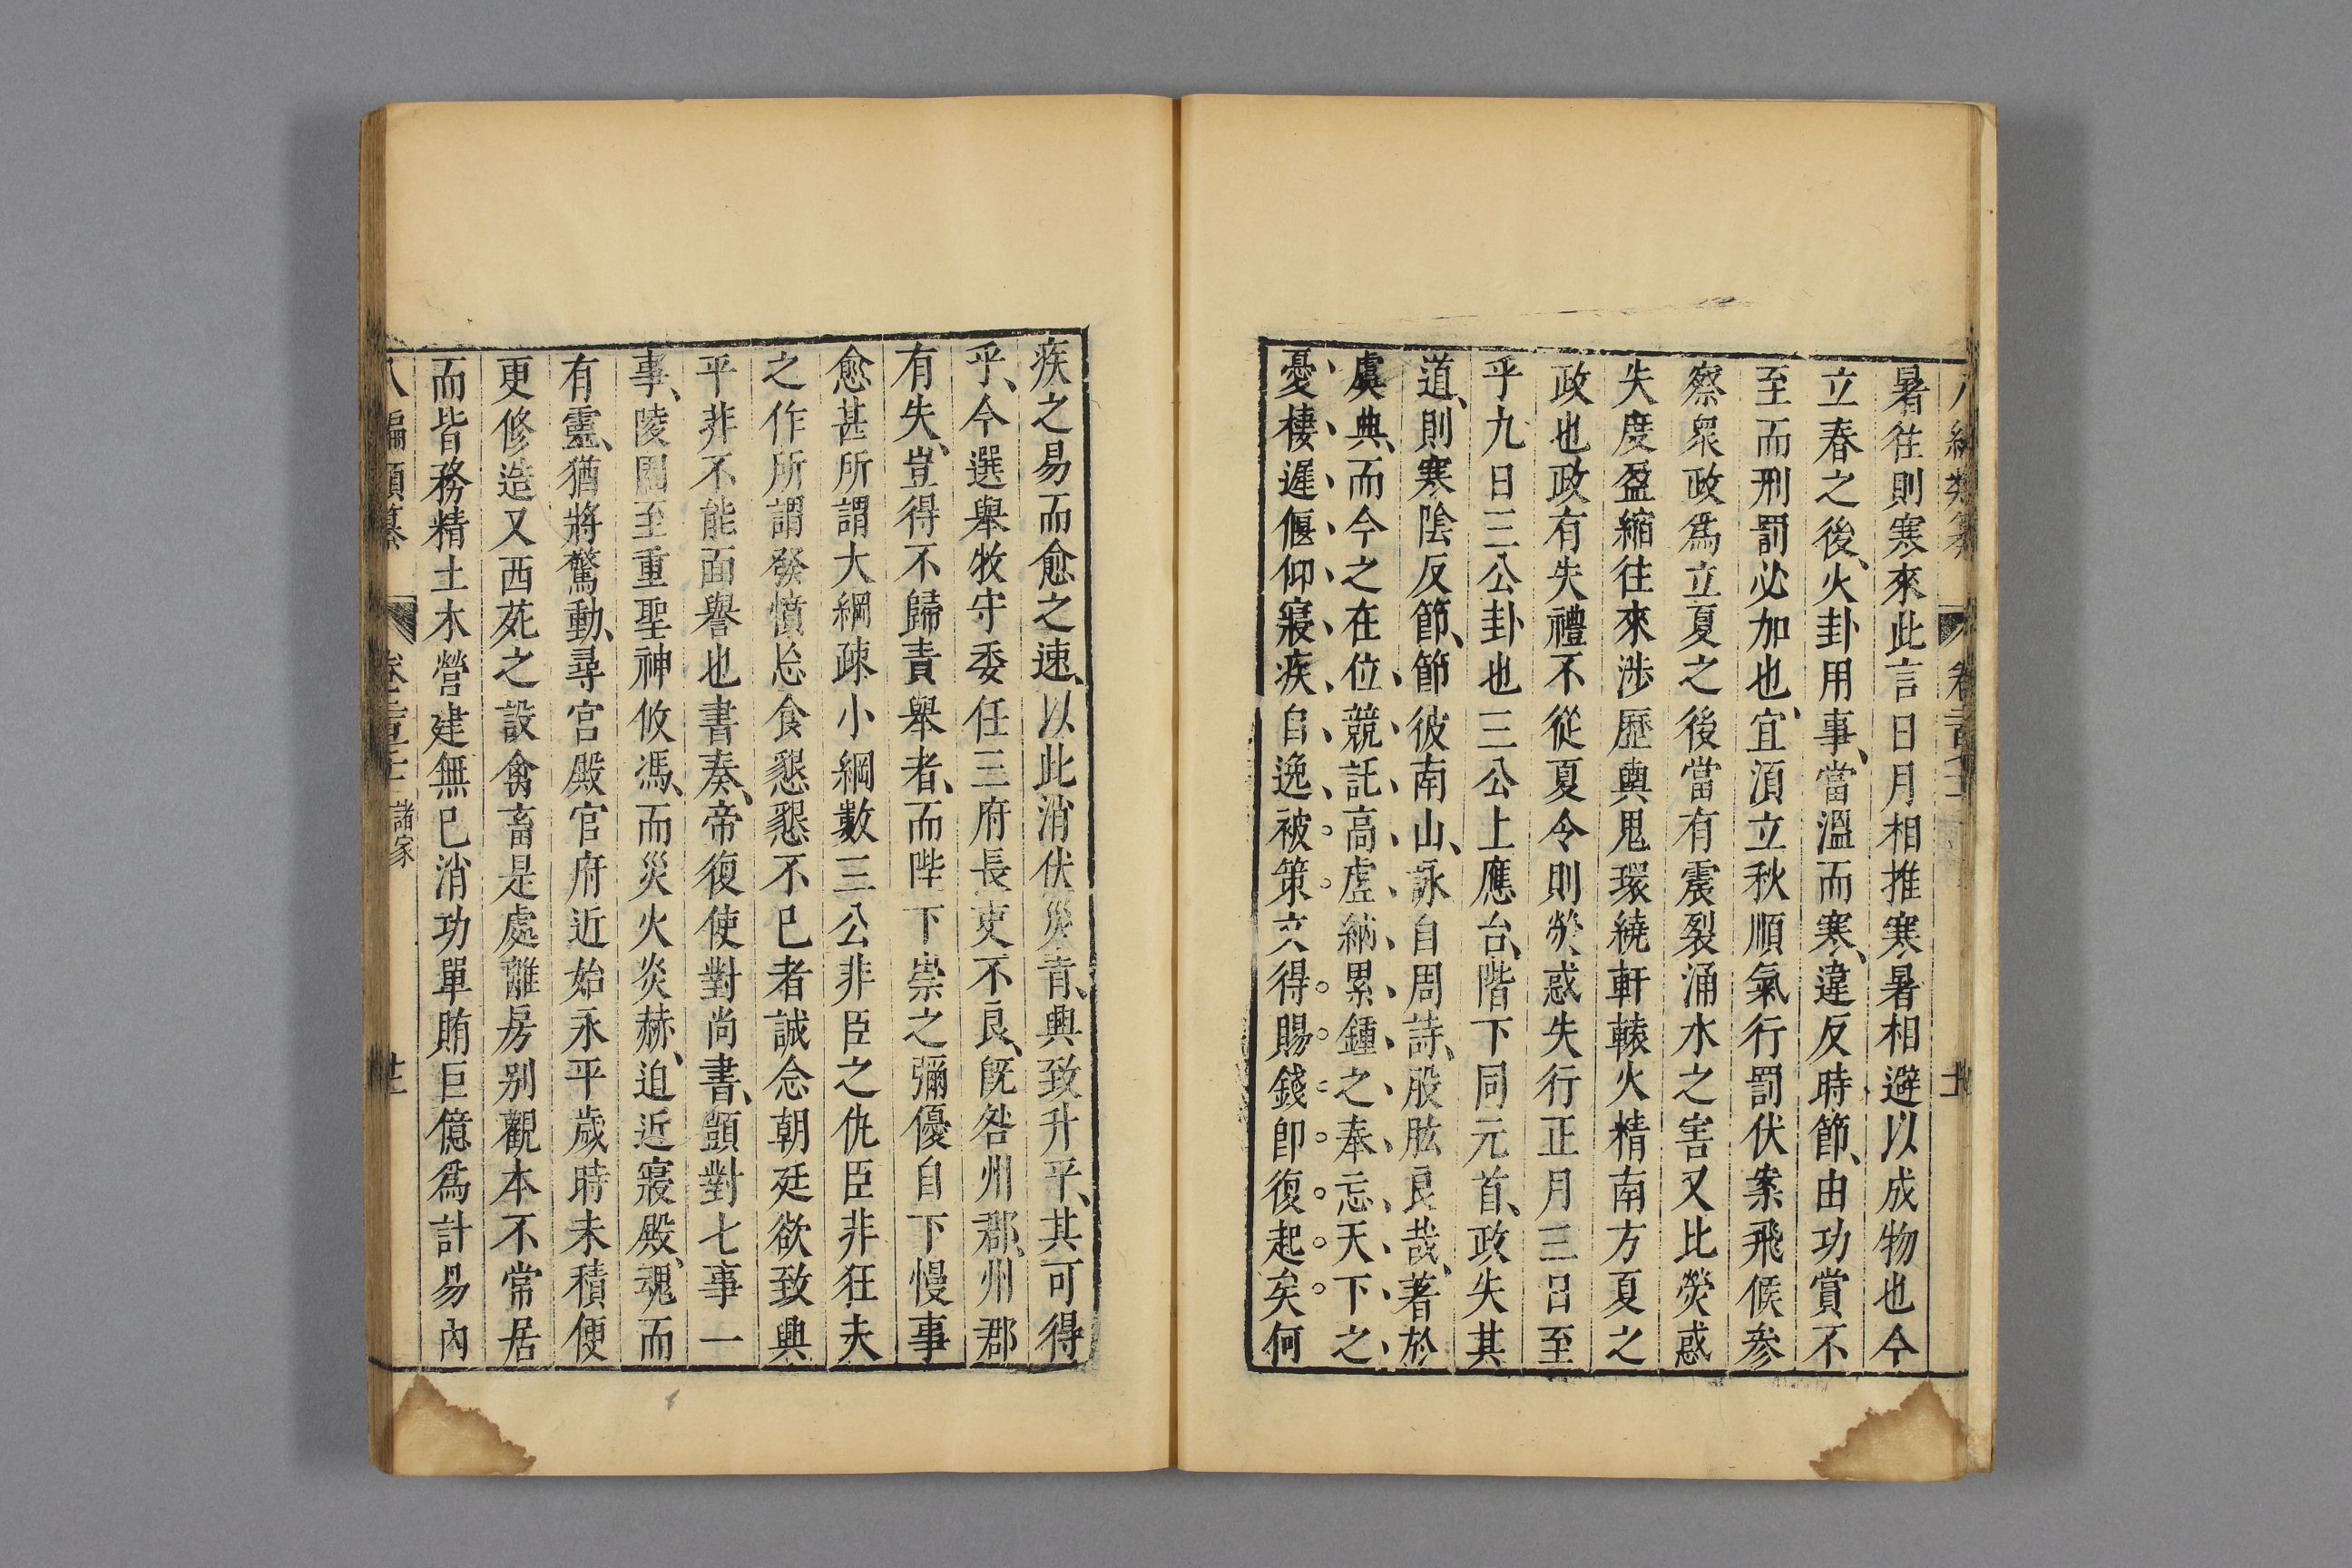 暑往則寒來此言日月相推寒暑相避以成物也今
立春之後、火卦用事、當溫而寒、違反時節、由功賞不
至而刑罰必加也、宜湏立秋順氣行罰伏案飛候參
察衆政爲立夏之後當有震裂涌水之害又比熒惑
失度盈縮往來涉歷輿鬼環繞軒轅火精南方夏之
政也政有失禮不從夏令則熒惑失行正月三日至
乎九日三公卦也三公上應台、階下同元首、政失其
道、則寒陰反節、節彼南山、詠自周詩、股肱良哉、著於
虞典、而今之在位競託高虛納累鍾之奉忘天下之
憂棲遲偃仰寢疾自逸被策文得賜錢卽復起矣何
疾之易而愈之速、以此消伏災眚、興致升平、其可得
乎、今選舉牧守委任三府長吏不良、旣咎州郡、州郡
有失、豈得不歸責舉者、而陛下崇之彌優自下慢事
愈甚所謂大綱疎小綱數三公非臣之仇臣非狂夫
之作所謂發憤忘食懇懇不已者誠念朝廷欲致興
平非不能面譽也書奏、帝復使對尚書、顗對七事一
事、陵園至重聖神攸馮、而災火炎赫、迫近寢殿、魂而
有靈、猶將驚動、尋宮殿官府近始永平歲時未積便
更修造又西苑之設禽畜是處離房別觀本不常居
而皆務精土木營建無已消功單賄巨億爲計易內
八編類纂 諸家